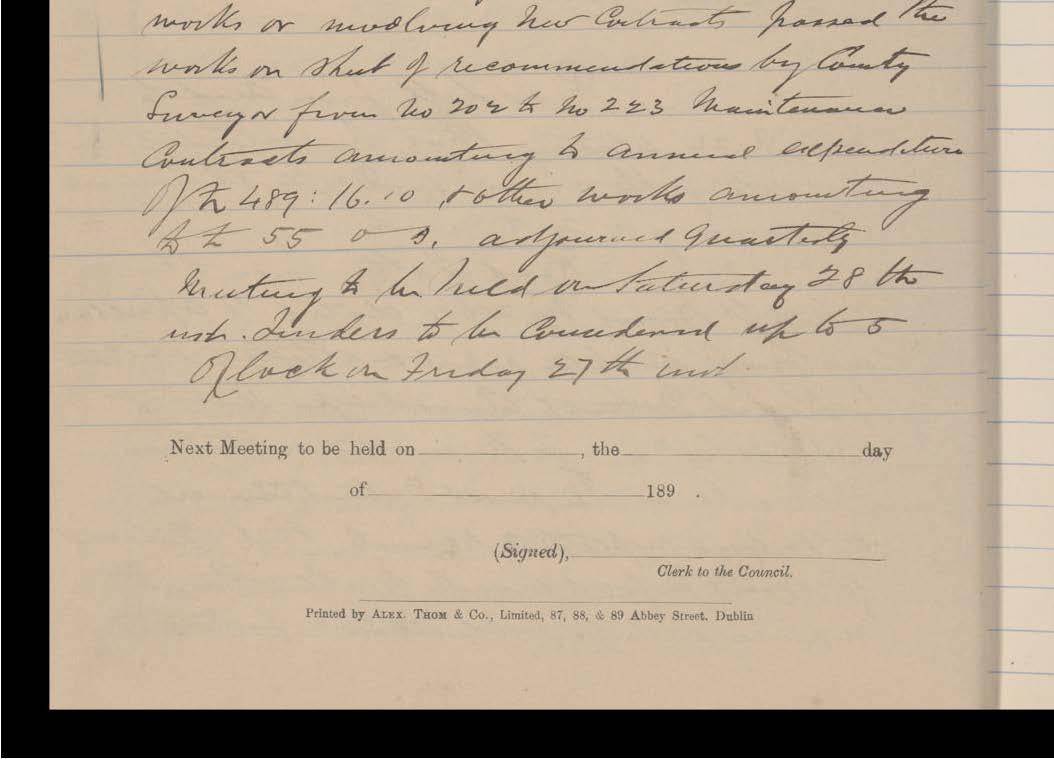 works or involving New Contracts passed the
works on Sheet of recommendations by County
Surveyor from No 202 to No 223 Maintenance
Contracts amounting to annual expenditure
of £ 489:16.10 & other works amounting
to £ 55 0 0. adjourned Quarterly
Meeting to be held on Saturday 28 th
inst. Tenders to be Considered up to 5
O'Clock on Friday 27 th inst
Next Meeting to be held on , the day
of 189 .
(Signed),
Clerk to the Council.
Printed by ALEX. THOM & Co., Limited, 87, 88, & 89 Abbey Street. Dublin